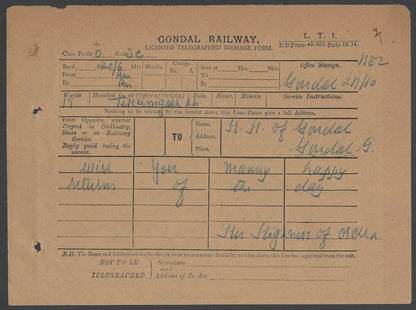 GONDAL RAILWAY.
L. T. 1.
LICENSED TELEGRAPHED MESSAGE FORM.
Class Prefix O Code
Words. Charge. Sent at Hrs. Mts. Office Stamps.
Rs. A. To
By By
Gondal
Words Handed in at (Office of Origin) Date Hour Minute Service Instructions.
19
Nothing to be written by the Sender above this Line-Please give a full Address.
Enter Opposite whether
Urgent or Ordinary,
State or on Railway
Service.
Reply paid stating the
amount.
TO
Name,
Address,
Place.
H. H. of Gondal
Gondal G.
Wish You Manny happy
returns of the day
Her Highness of Orchha.
N.B. The Name and Address of the Sender, if TO BE TELEGRAPHED should be written above this line but separated from the text.
NOT TO BE
TELEGRAPHED.
Signature
and
Address of Sender